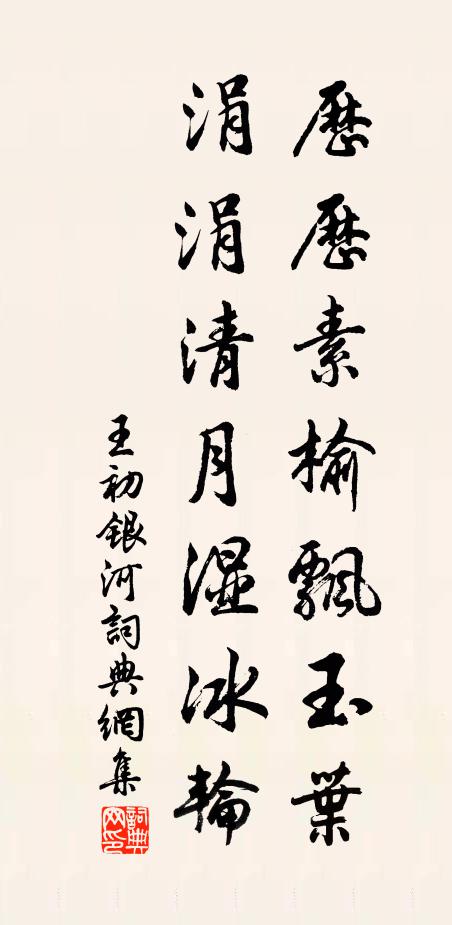 歷歷素榆飄玉葉
涓涓清月濕冰輪
王初銀河詞典網集
詞典網印